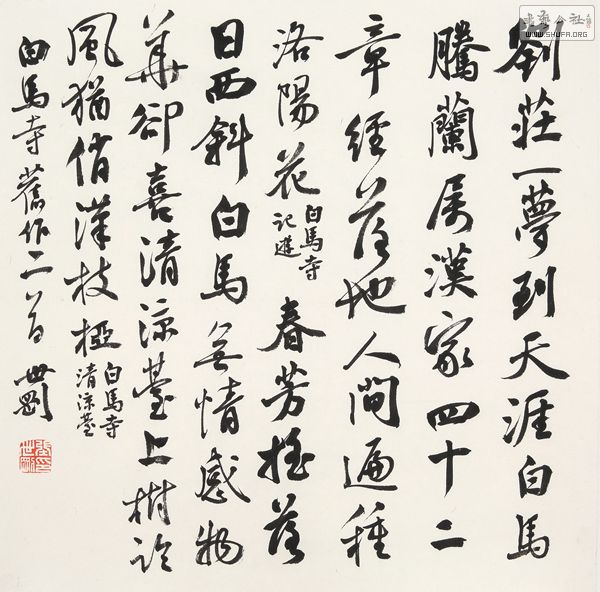 劉莊一夢到天涯白馬
騰蘭属漢家四十二
章經落地人間遍種
洛陽花
白馬寺
記遊
春芳搖落
日西斜白馬無情感物
華卻喜清涼臺上樹臨
風猶俏漢枝椏
白馬寺
清涼臺
白馬寺舊作二首 世剛
書藝公社
WWW.SHUFA.ORG